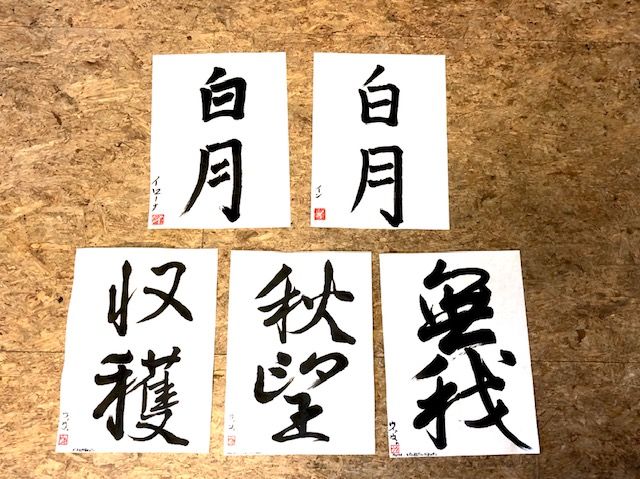 白月
イローナ
白月
イン
収穫
秋望
無我